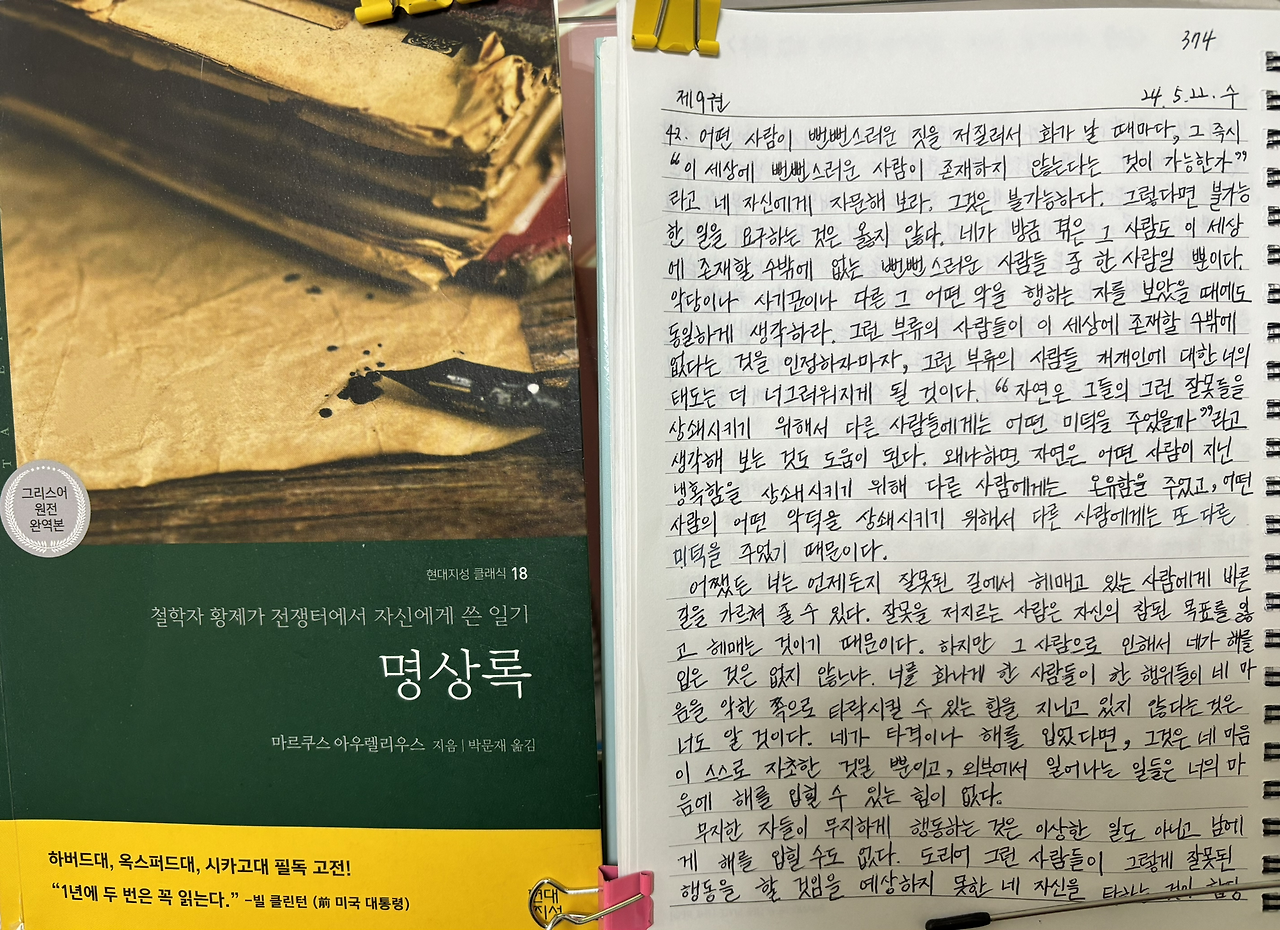 그리스어
원전
완역본
현대지성 클래식 18
철학자 황제가 전쟁터에서 자신에게 쓴 일기
명상록
마르쿠스 아우렐리우스 지음 | 박문재 옮김
하버드대, 옥스퍼드대, 시카고대 필독 고전!
“1년에 두 번은 꼭 읽는다.” –빌 클린턴 (前 미국 대통령)
현대
지성
374
제9권 24. 5. 22. 수
42. 어떤 사람이 뻔뻔스러운 짓을 저질러서 화가 날 때마다, 그 즉시
“이 세상에 뻔뻔스러운 사람이 존재하지 않는다는 것이 가능한가”
라고 네 자신에게 자문해 보라. 그것은 불가능하다. 그렇다면 불가능
한 일을 요구하는 것은 옳지 않다. 네가 방금 겪은 그 사람도 이 세상
에 존재할 수밖에 없는 뻔뻔스러운 사람들 중 한 사람일 뿐이다.
악당이나 사기꾼이나 다른 그 어떤 악을 행하는 자를 보았을 때에도
동일하게 생각하라. 그런 부류의 사람들이 이 세상에 존재할 수밖에
없다는 것을 인정하자마자, 그런 부류의 사람들 개개인에 대한 너의
태도는 더 너그러워지게 될 것이다. “자연은 그들의 그런 잘못들을
상쇄시키기 위해서 다른 사람들에게는 어떤 미덕을 주었을까”라고
생각해 보는 것도 도움이 된다. 왜냐하면 자연은 어떤 사람이 지닌
냉혹함을 상쇄시키기 위해 다른 사람에게는 온유함을 주었고, 어떤
사람의 어떤 악덕을 상쇄시키기 위해서 다른 사람에게는 또 다른
미덕을 주었기 때문이다.
어쨌든 너는 언제든지 잘못된 길에서 헤매고 있는 사람에게 바른
길을 가르쳐 줄 수 있다. 잘못을 저지르는 사람은 자신의 참된 목표를 잃
고 헤매는 것이기 때문이다. 하지만 그 사람으로 인해서 네가 해를
입은 것은 없지 않느냐. 너를 화나게 한 사람들이 한 행위들이 네 마
음을 악한 쪽으로 타락시킬 수 있는 힘을 지니고 있지 않다는 것은
너도 알 것이다. 네가 타격이나 해를 입었다면, 그것은 네 마음
이 스스로 자초한 것일 뿐이고, 외부에서 일어나는 일들은 너의 마
음에 해를 입힐 수 있는 힘이 없다.
무지한 자들이 무지하게 행동하는 것은 이상한 일도 아니고 남에
게 해를 입힐 수도 없다. 도리어 그런 사람들이 그렇게 잘못된
행동을 할 것임을 예상하지 못한 네 자신을